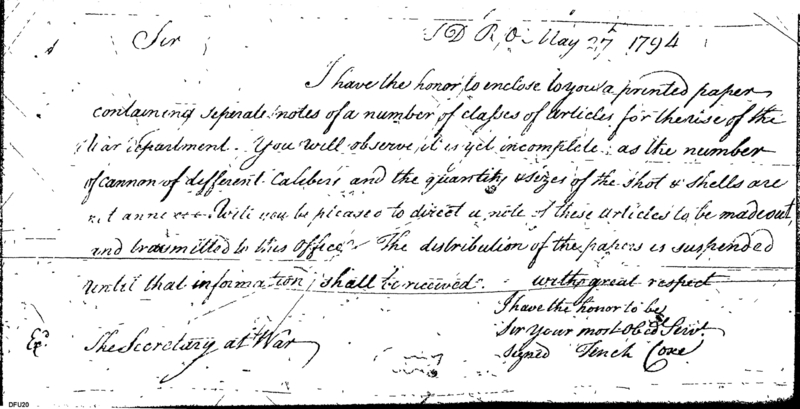 Sir
T D R, O May 27th 1794
I have the honor, to enclose to you a printed paper,
containing seperate notes of a number of classes of articles for the use of the
War Department. You will observe, it is yet incomplete; as the number
of cannon of different Calibers and the quantity & sizes of the shot & shells are
not annexed. Will you be pleased to direct a note of these articles to be made out,
and transmitted to this Office. The distribution of the papers is suspended
until that information, shall be received. with great respect
I have the honor to be,
Sir Your most Obed Servt
Ex. The Secretary at War
signed Tench Coxe
DFU20